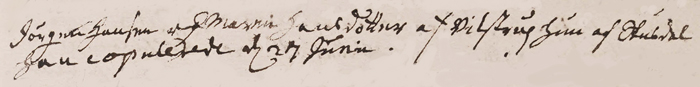 Jørgen Hansen og Maren Hansdotter af Vilstrup hun af
han copulerede d 27 Junii.